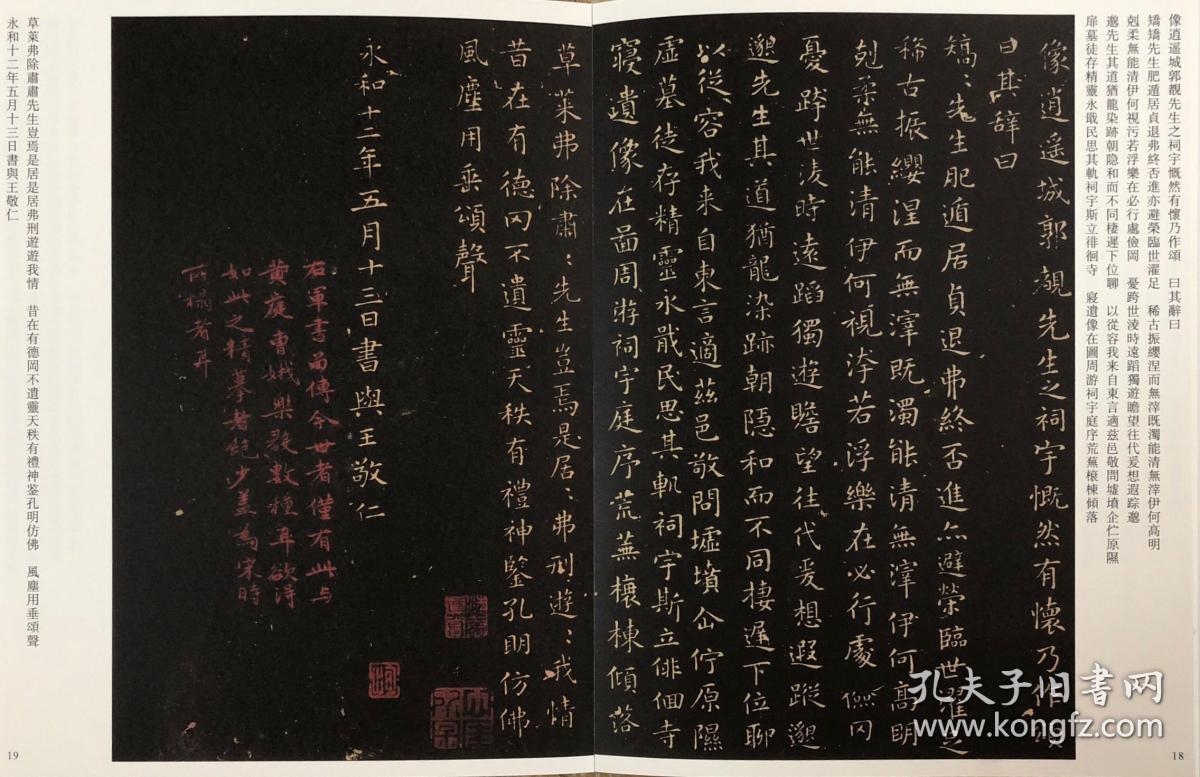 像逍遥城郭覩先生之祠宇慨然有懷乃作頌　曰其辭曰
矯矯先生肥遁居貞退弗終否進亦避榮臨世濯足　稀古振纓涅而無滓既濁能清無滓伊何高明
剋柔無能清伊何視污若浮樂在必行處儉罔　憂跨世淩時遠蹈獨遊瞻望往代爰想遐踪邈
邈先生其道猶龍染跡朝隐和而不同棲遲下位聊　以從容我来自東言適兹邑敬問墟墳企伫原隰
扉墓徒存精靈永戢民思其軌祠宇斯立徘徊寺　寢遺像在圖周游祠宇庭序荒蕪榱棟傾落
像逍遥城郭覩先生之祠宇慨然有懷乃作頌
曰其辭曰
矯〻先生肥遁居貞退弗終否進亦避榮臨世濯足
稀古振纓涅而無滓既濁能清無滓伊何高明
剋柔無能清伊何視汙若浮樂在必行處儉罔
憂跨世淩時遠蹈獨遊瞻望往代爰想遐蹤邈
邈先生其道猶龍染跡朝隱和而不同棲遲下位聊
以從容我来自東言適兹邑敬問墟墳企佇原隰
虚墓徒存精靈永戢民思其軌祠宇斯立徘徊寺
寢遺像在圖周游祠宇庭序荒蕪榱棟傾落
草萊弗除肅〻先生豈焉是居〻弗刑遊〻我情
昔在有德罔不遺靈天秩有禮神鑒孔明仿佛
風塵用垂頌聲
永和十二年五月十三日書與王敬仁
右軍書而傳今世者僅有此与
黄庭曹娥樂毅數種耳欲得
如此之精摹者絶少蓋為宋時
草萊弗除肅肅先生豈焉是居是居弗刑遊遊我情　昔在有德罔不遺靈天秩有禮神鉴孔明仿佛　風塵用垂頌聲
永和十二年五月十三日書與王敬仁
19
18
孔夫子旧书网
www.kongfz.com